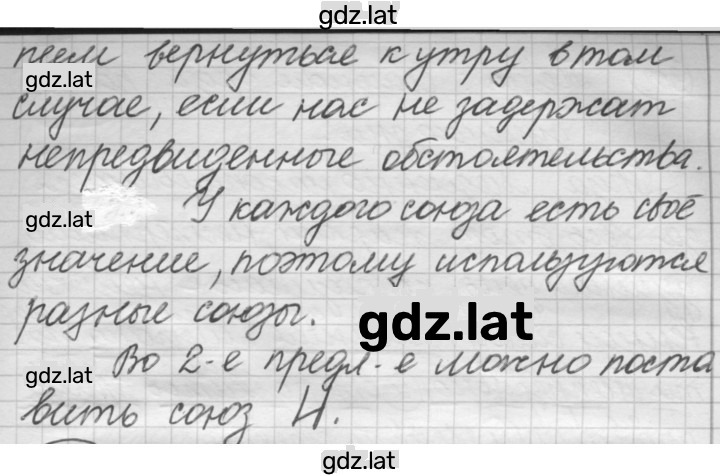 gdz.lat
пеем вернуться к утру в том
gdz.lat
случае, если нас не задержат
непредвиденные обстоятельства.
gdz.lat
У каждого союза есть своё
значение, поэтому используются
разные союзы.
gdz.lat
gdz.lat
Во 2-е предл-е можно поста
вить союз И.
gdz.lat